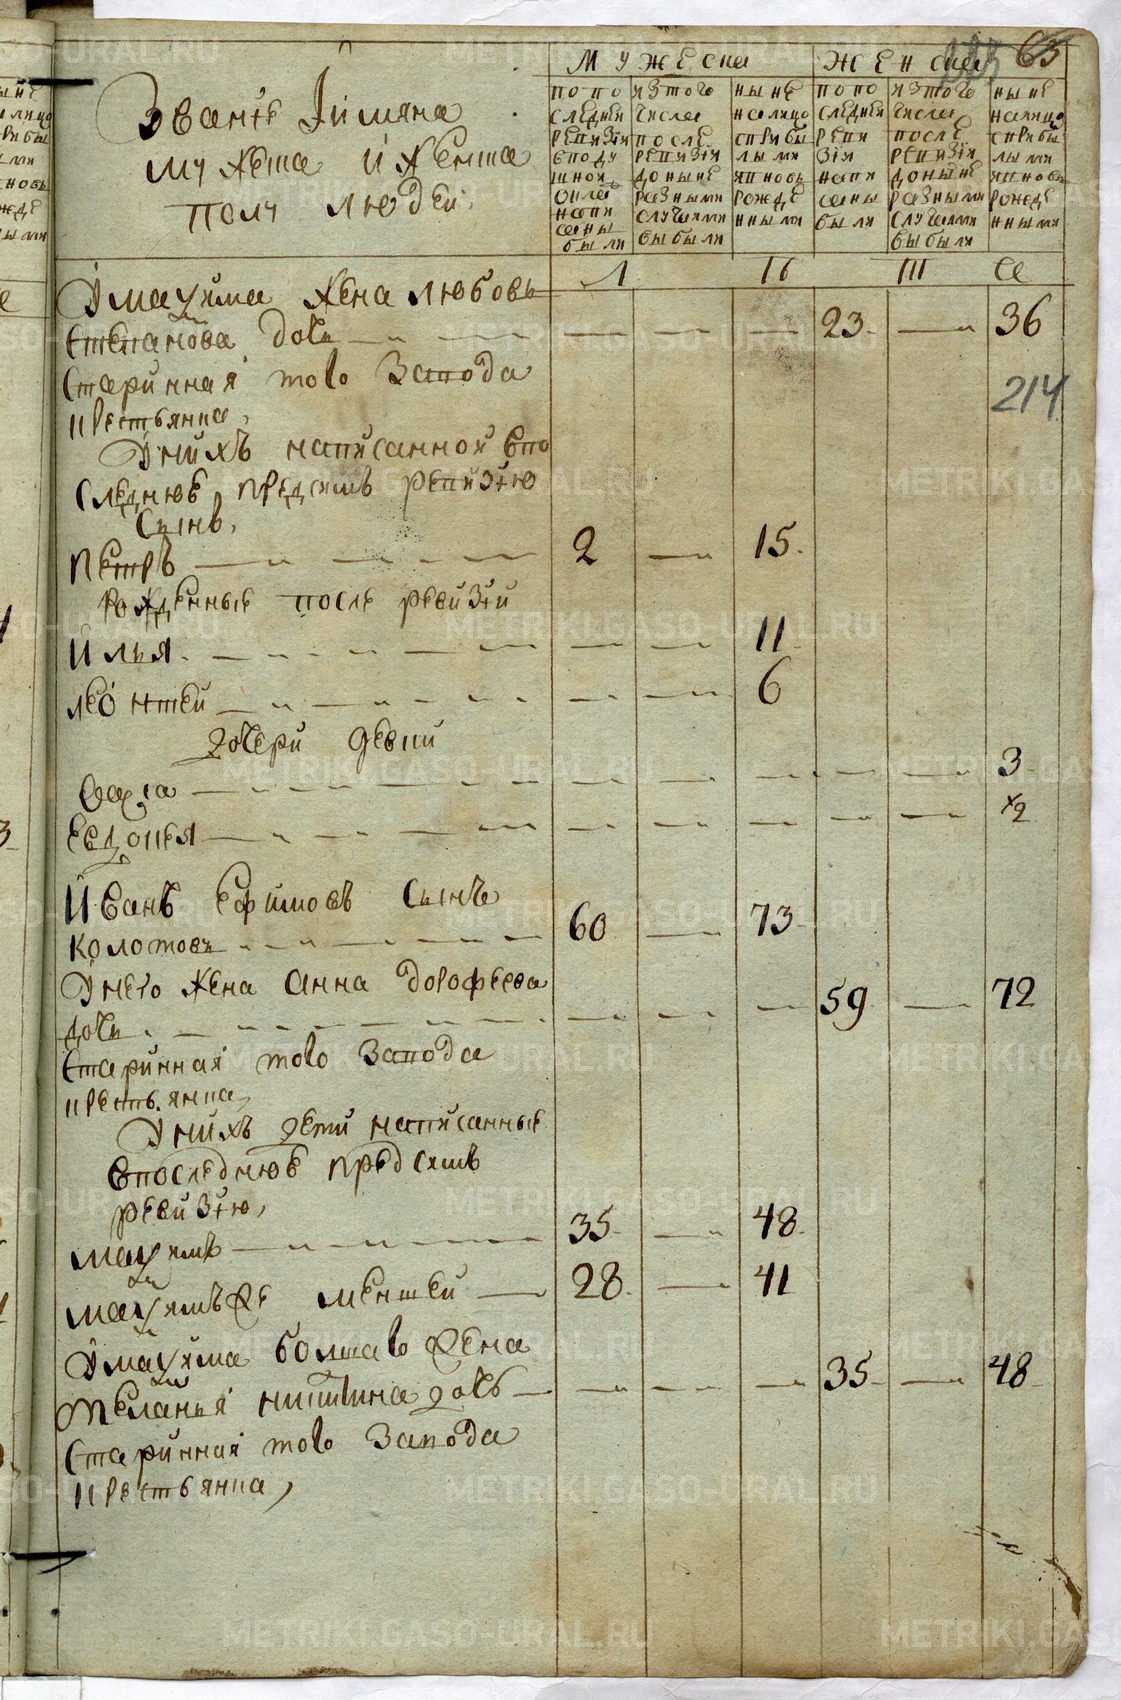 65
Званïе Iимяна
мужеска иженска
полу людей
Мужеска
Женска
попо
следней
ревизïи
споду
шной
окла
напи
саны
были
изтого
числа
после
ревизïи
доныне
разными
случаями
выбыли
ныне
налицо
сприбы
лыми
ивновь
рожде
нными
попо
следней
реви
зïи
напи
саны
были
изтого
числа
после
ревизïи
доныне
разными
случаями
выбыли
ныне
налицо
сприбы
лыми
ивновь
рожде
нными
Умаѯима жена любовь
степанова дочь 23 36
старинная того завода
крестьянка
214
Унихъ написанной впо
следнюе предсимъ ревизïю
сынъ
Петръ 2 15
рожденные после ревизïи
Илья 11
леонтей 6
дочери девки
3
Евдокея 2
Иванъ Ефимовъ сынъ
колотовъ 60 73
Унего жена анна дорофеева
дочь 59 72
старинная того завода
крестьянка
Унихъ дети написанные
впоследнюе предсимъ
ревизïю
маѯимъ 35 48
маѯимъже меншей 28 41
Умаѯима болшаго жена
меланья никитина дочь 35 48
старинная того завода
крестьянка
METRIKI.GASO-URAL.RU